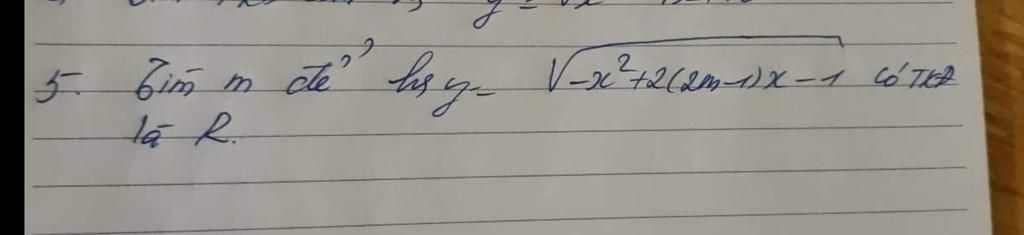 y = √x
5. Tìm m để hs y = √-x²+2(2m-1)x-1 có TXĐ
là R.